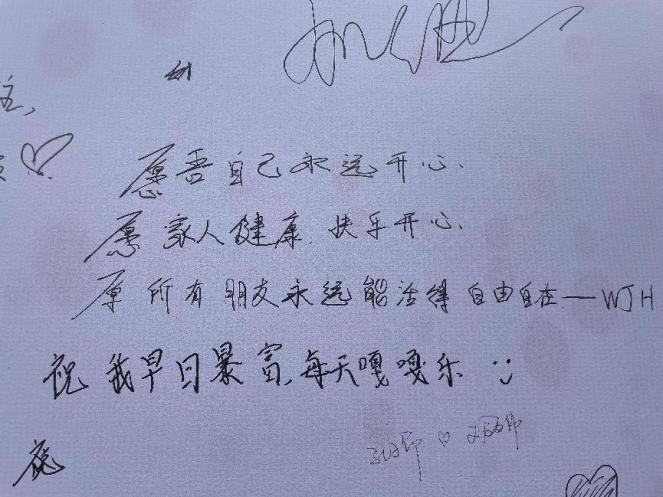 主,
愿吾自己永远开心.
愿家人健康.快乐开心.
原所有朋友永远能活得自由自在—WJH
祝我早日暴富,每天嘎嘎乐